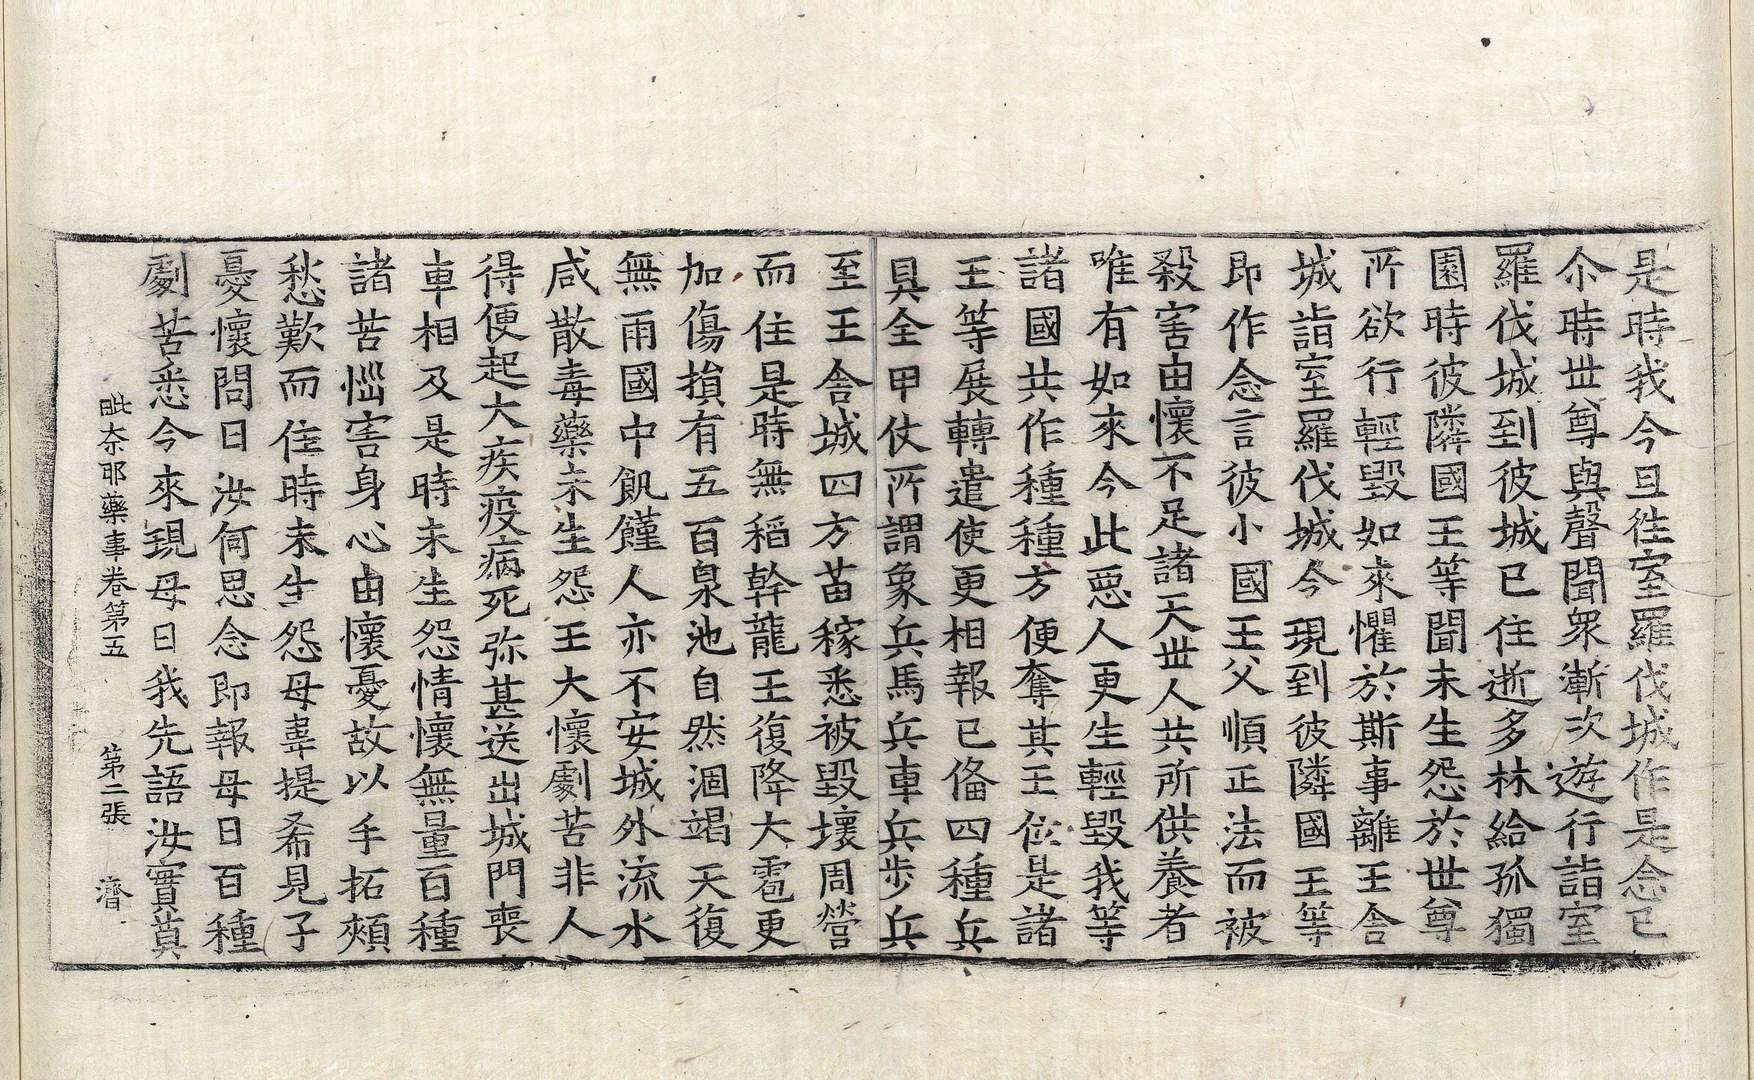 是時我今旦徃室羅伐城作是念已
尒時世尊與聲聞衆漸次遊行詣室
羅伐城到彼城已住逝多林給孤獨
園時彼隣國王等聞未生怨於世尊
所欲行輕毀如來懼於斯事離王舍
城詣室羅伐城今現到彼隣國王等
即作念言彼小國王父順正法而被
殺害由懷不足諸天世人共所供養者
唯有如來今此惡人更生輕毀我等
諸國共作種種方便奪其王位是諸
王等展轉遣使更相報已俻四種兵
具全甲仗所謂象兵馬兵車兵步兵
至王舍城四方苗稼悉被毀壞周營
而住是時無稻幹龍王復降大雹更
加傷損有五百泉池自然涸竭天復
無雨國中飢饉人亦不安城外流水
咸散毒藥未生怨王大懷劇苦非人
得便起大疾疫病死弥甚送出城門喪
車相及是時未生怨情懷無量百種
諸苦惱害身心由懷憂故以手拓頰
愁歎而住時未生怨母韋提希見子
憂懷問曰汝何思念即報母曰百種
劇苦悉今來現母曰我先語汝實莫
毗奈耶藥事卷第五 第二張 濟